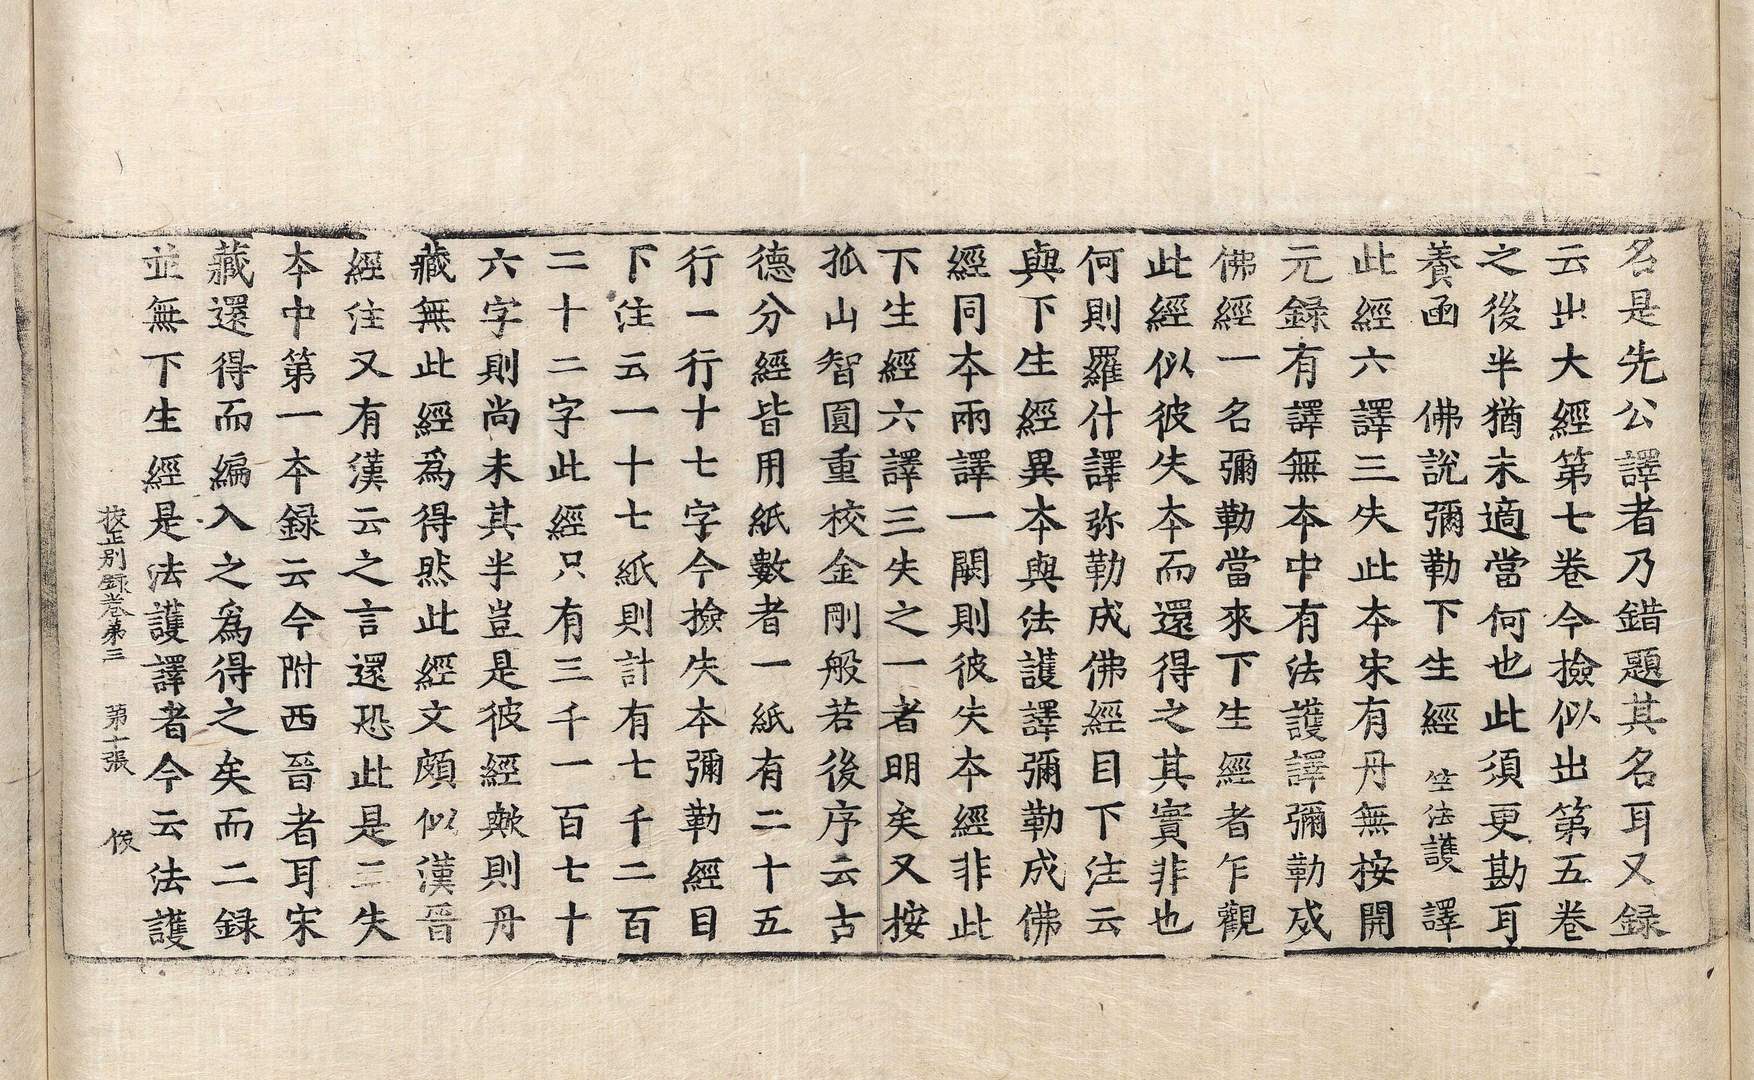 名是先公譯者乃錯題其名耳又録
云出大經第七卷今撿似出第五卷
之後半猶未適當何也此須更勘耳
養函　佛說彌勒下生經　竺法護　譯
此經六譯三失此本宋有丹無按開
元録有譯無本中有法護譯彌勒成
佛經一名彌勒當來下生經者乍觀
此經似彼失本而還得之其實非也
何則羅什譯弥勒成佛經目下注云
與下生經異本與法護譯彌勒成佛
經同本兩譯一闕則彼失本經非此
下生經六譯三失之一者明矣又按
孤山智圓重校金剛般若後序云古
德分經皆用紙數者一紙有二十五
行一行十七字今撿失本彌勒經目
下注云一十七紙則計有七千二百
二十二字此經只有三千一百七十
六字則尚未其半豈是彼經歟則丹
藏無此經爲得然此經文頗似漢晉
經注又有漢云之言還恐此是三失
本中第一本録云今附西晉者耳宋
藏還得而編入之爲得之矣而二録
並無下生經是法護譯者今云法護
校正別録卷第三　第十張　俊